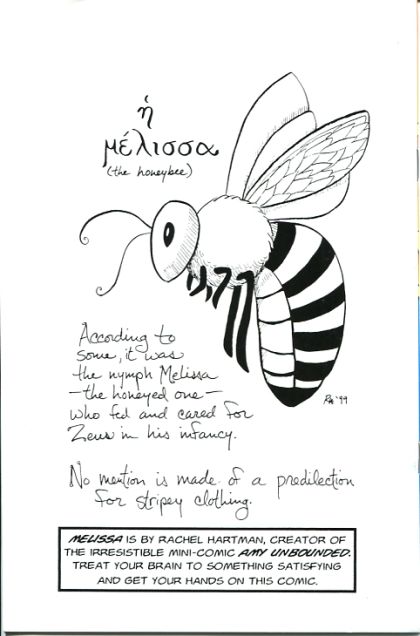 ἡ
μέλισσα
(the honeybee)
According to
some, it was
the nymph Melissa
—the honeyed one—
who fed and cared for
Zeus in his infancy.
No mention is made of a predilection
for stripey clothing.
RH '99
MELISSA IS BY RACHEL HARTMAN, CREATOR OF
THE IRRESISTIBLE MINI-COMIC AMY UNBOUNDED.
TREAT YOUR BRAIN TO SOMETHING SATISFYING
AND GET YOUR HANDS ON THIS COMIC.